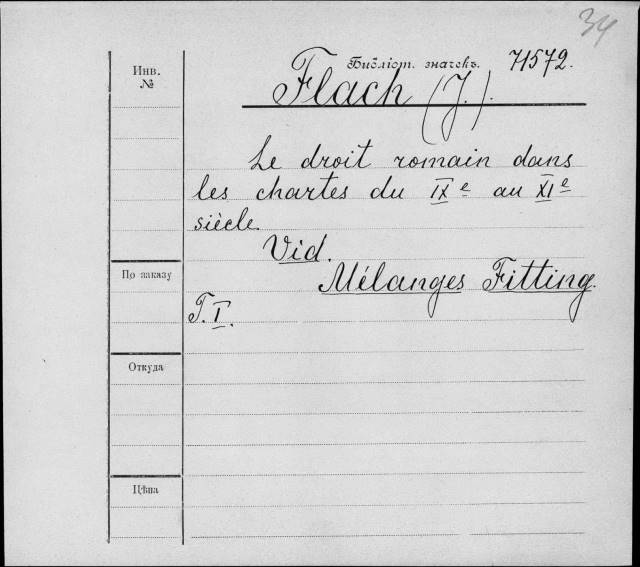 34
Инв.
№
Библіот. значекъ. 71572.
Flach (J.).
Le droit romain dans
les chartes du IXe au XIe
siècle.
Vid.
Mélanges Fitting.
T. I.
По заказу
Откуда
Цѣна